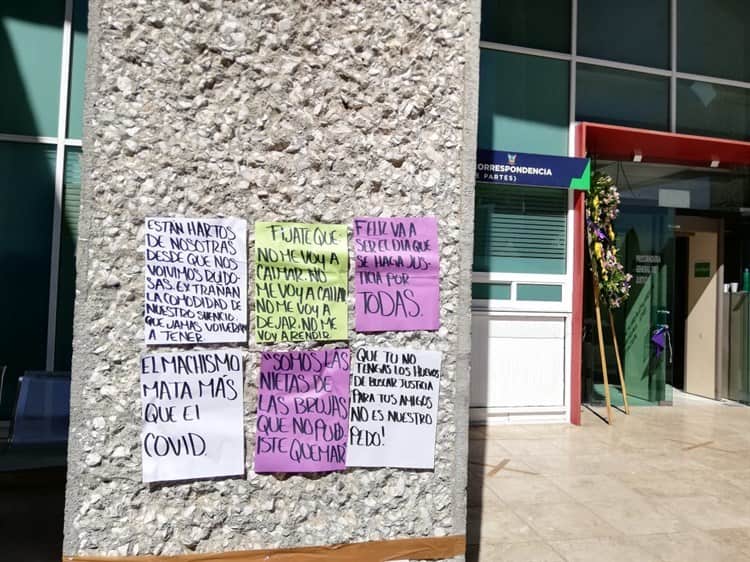 ESTÁN HARTOS
DE NOSOTRAS
DESDE QUE NOS
VOLVIMOS RUIDO-
SAS. EXTRAÑAN
LA COMODIDAD DE
NUESTRO SILENCIO.
QUE JAMAS VOLVERAN
A TENER.
FIJATE QUE
NO ME VOY A
CALMAR. NO
ME VOY A CALLAR
NO ME VOY A
DEJAR. NO ME
VOY A RENDIR
FELIZ VA A
SER EL DIA QUE
SE HAGA JUS-
TICIA POR
TODAS.
EL MACHISMO
MATA MÁS
QUE El
COVID.
"SOMOS LAS
NIETAS DE
LAS BRUJAS
QUE NO PUD
ISTE QUEMAR
QUE TU NO
TENGAS LOS HUEVOS
DE BUSCAR JUSTICIA
PARA TUS AMIGOS
NO ES NUESTRO
PEDO!
CORRESPONDENCIA
PARTES)
PROCURADURÍA
GENERAL DE
JUSTICIA